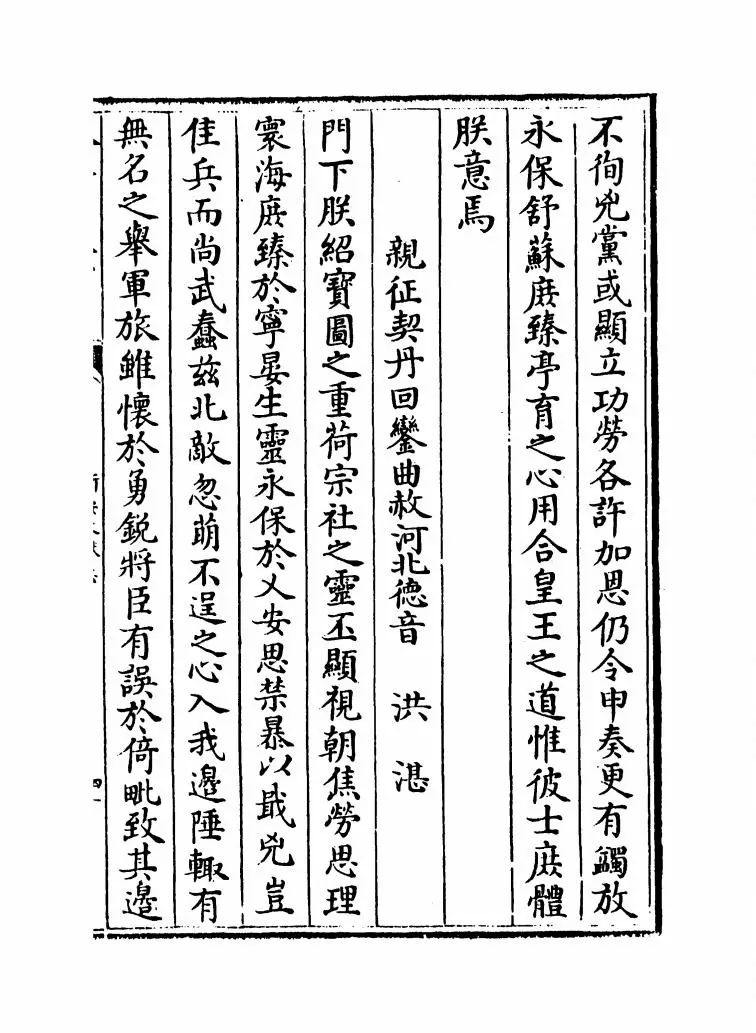 不徇兇黨或顯立功勞各許加恩仍令申奏更有蠲放
永保舒蘇庻臻亭育之心用合皇王之道惟彼士庻體
朕意焉
親征契丹回鑾曲赦河北德音 洪湛
門下朕紹寳圖之重荷宗社之靈丕顯視朝焦勞思理
寰海庻臻於寧晏生靈永保於乂安思禁暴以戢兇豈
佳兵而尚武蠢兹北敵忽萌不逞之心入我邉陲輙有
無名之舉軍旅雖懷於勇鋭將臣有誤於倚毗致其邉